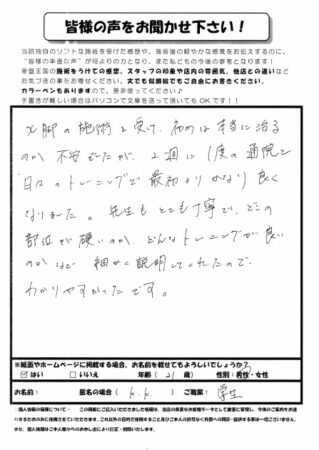 皆様の声をお聞かせ下さい！
当院独自のソフトな施術を受けた感想や、施術後の軽やかな感覚をお伝えするのに、
"皆様の率直な声"が何よりの力となり、また私どもの今後の参考となります。
骨盤王国の施術をうけての感想、スタッフの印象や店内の雰囲気、他店との違いなど
お気づきの事をお書きください。文でも似顔絵でもご自由にお書きください。
カラーペンもありますので、是非使ってください♪
手書きが難しい場合はパソコンで文章を送って頂いてもOKです！！
X脚の施術を受け、初めは本当に治る
のか不安でしたが、2週に1度の通院と
日々のトレーニングで最初よりかなり良く
なりました。先生もとても丁寧で、どこの
部位が硬いのか、どんなトレーニングが良い
のかなど細かく説明してくれたので
わかりやすかったです。
※紙面やホームページに掲載する場合、お名前を載せてもよろしいでしょうか？
☑はい □いいえ 年齢（ 21 歳） 性別：男性・女性
お名前： 匿名の場合（ K.K. ） ご職業： 学生
・個人情報の保護について・